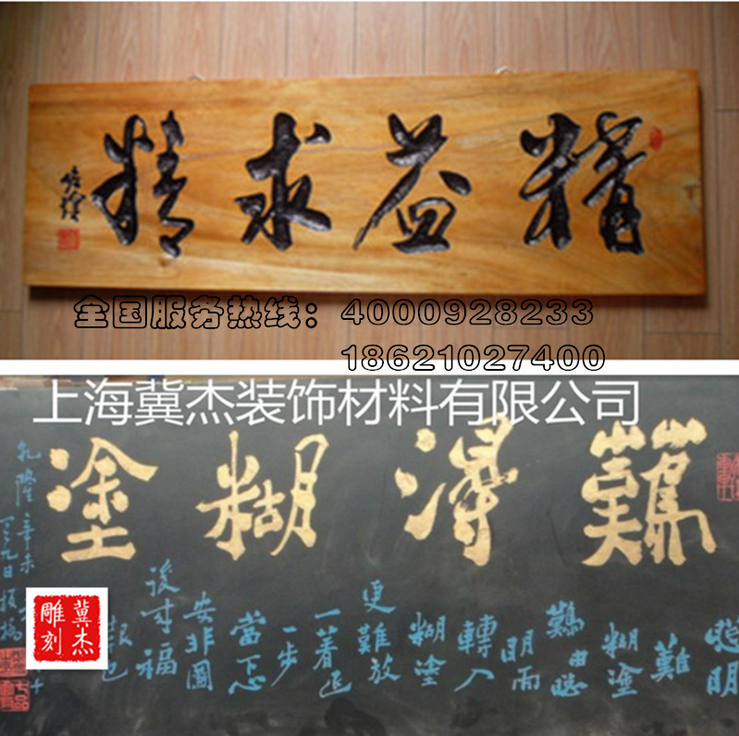 精益求精
全国服务热线：4000928233
18621027400
上海冀杰装饰材料有限公司
難得糊塗
聰明
難
糊塗
難由聰
明而
轉入
糊塗
更難放
一著退
一步
當下心
安非圖
後来福
報也
乾隆辛未
九日板橋
冀杰
雕刻